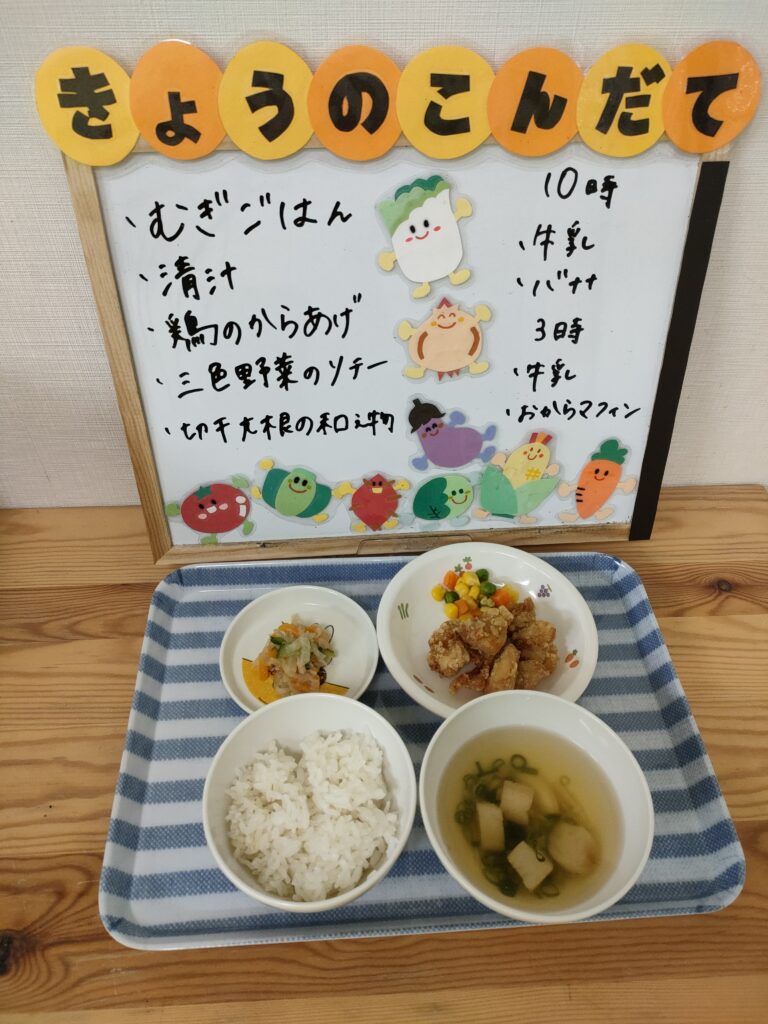 きょうのこんだて
・むぎごはん
・清汁
・鶏のからあげ
・三色野菜のソテー
・切干大根の和え物
10時
・牛乳
・バナナ
3時
・牛乳
・おからマフィン